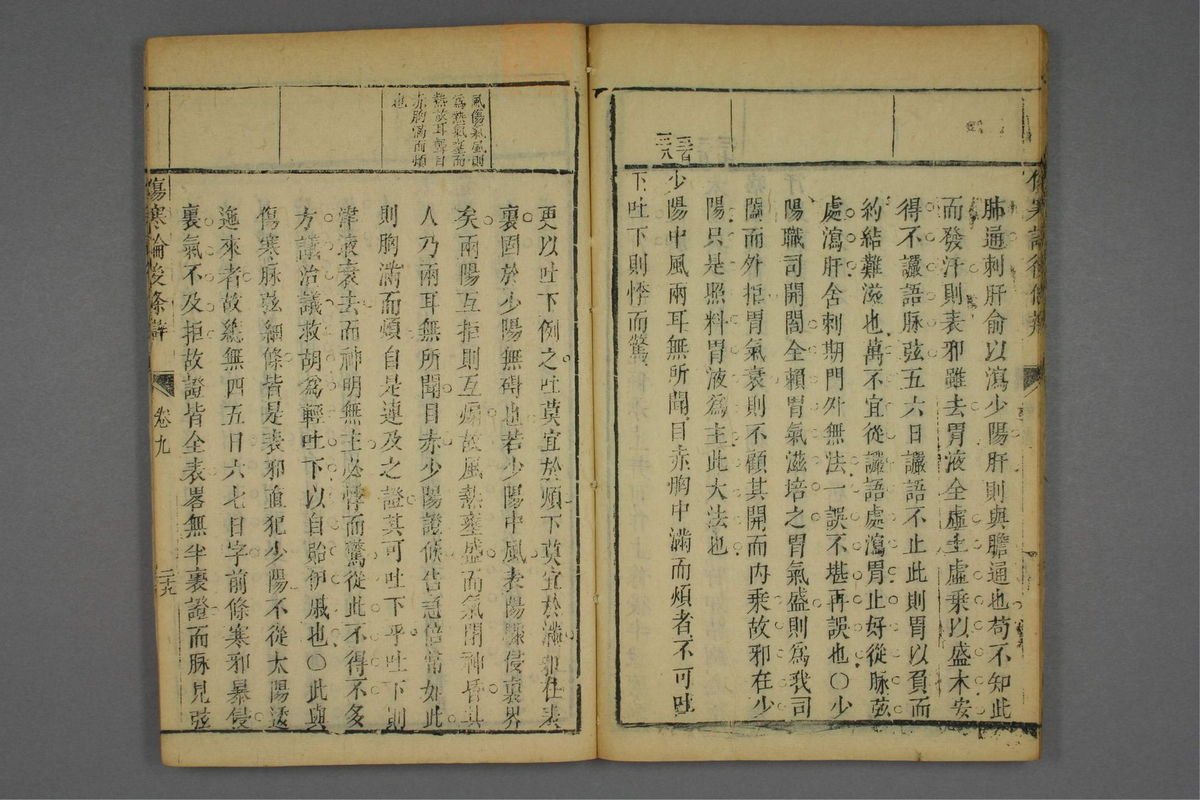 肺通刺肝俞以瀉少陽肝則與膽通也苟不知此
而發汗則表邪雖去胃液全虛土虛乘以盛木安
得不讝語脉弦五六日讝語不止此則胃以負而
約結難滋也萬不宜從讝語處瀉胃止好從脉弦
處瀉肝舍刺期門外無法一誤不堪再誤也〇少
陽職司開闔全賴胃氣滋培之胃氣盛則為我司
闔而外拒胃氣衰則不顧其開而內乘故邪在少
陽只是照料胃液爲主此大法也
少陽中風兩耳無所聞目赤胸中滿而煩者不可吐
下吐下則悸而驚
風傷氣風則
爲熱氣壅而
熱故耳聾目
赤胸滿而煩
也
更以吐下例之吐莫宜於煩下莫宜於滿邪在表
裏固於少陽無碍也若少陽中風表陽驟侵裏界
矣兩陽互拒則互煽故風熱壅盛而氣閉神昏其
人乃兩耳無所聞目赤少陽證候告急倍常如此
則胸滿而煩自是連及之證其可吐下乎吐下則
津液衰去而神明無主必悸而驚從此不得不多
方議治議救胡爲輕吐下以自貽伊戚也〇此與
傷寒脉弦細條皆是表邪直犯少陽不從太陽逶
迤來者故總無四五日六七日字前條寒邪暴侵
裏氣不及拒故證皆全表畧無半裏證而脉見弦
傷寒論後條辯
卷九
二十九